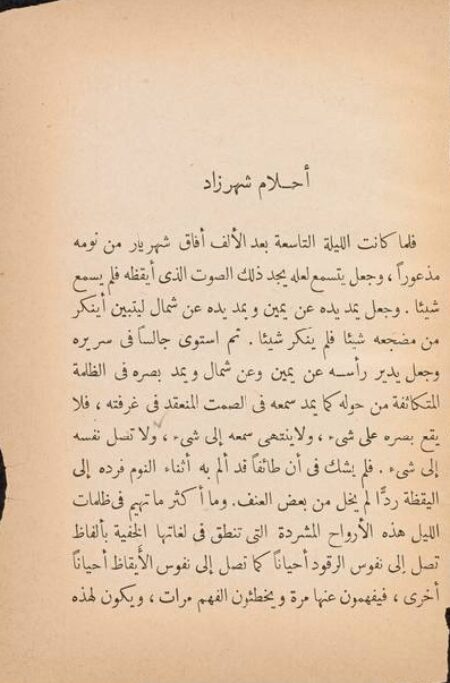 أحلام شهرزاد
فلما كانت الليلة التاسعة بعد الألف أفاق شهريار من نومه
مذعوراً ، وجعل يتسمع لعله يجد ذلك الصوت الذى أيقظه فلم يسمع
شيئا . وجعل يمد يده عن يمين ويمد يده عن شمال ليتبين أينكر
من مضجعه شيئا فلم ينكر شيئا . ثم استوى جالساً فى سريره
وجعل يدير رأسه عن يمين وعن شمال ويمد بصره فى الظلمة
المتكاثفة من حوله كما يمد سمعه فى الصمت المنعقد فى غرفته ، فلا
يقع بصره على شىء ، ولا ينتهى سمعه إلى شىء ، ولا تصل نفسه
إلى شىء . فلم يشك فى أن طائفاً قد ألم به أثناء النوم فرده إلى
اليقظة ردًّا لم يخل من بعض العنف. وما أكثر ما تهيم فى ظلمات
الليل هذه الأرواح المشردة التى تنطق فى لغاتها الخفية بألفاظ
تصل إلى نفوس الرقود أحياناً كما تصل إلى نفوس الأيقاظ أحياناً
أخرى ، فيفهمون عنها مرة ويخطئون الفهم مرات ، ويكون لهذه